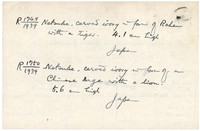 R 1749/1939 Netsuke, carved ivory in form of Rakan
with a tiger. 4.1 cm high
Japan
R 1750/1939 Netsuke, carved ivory in form of a
sage with a lion
5.6 cm high
Japan